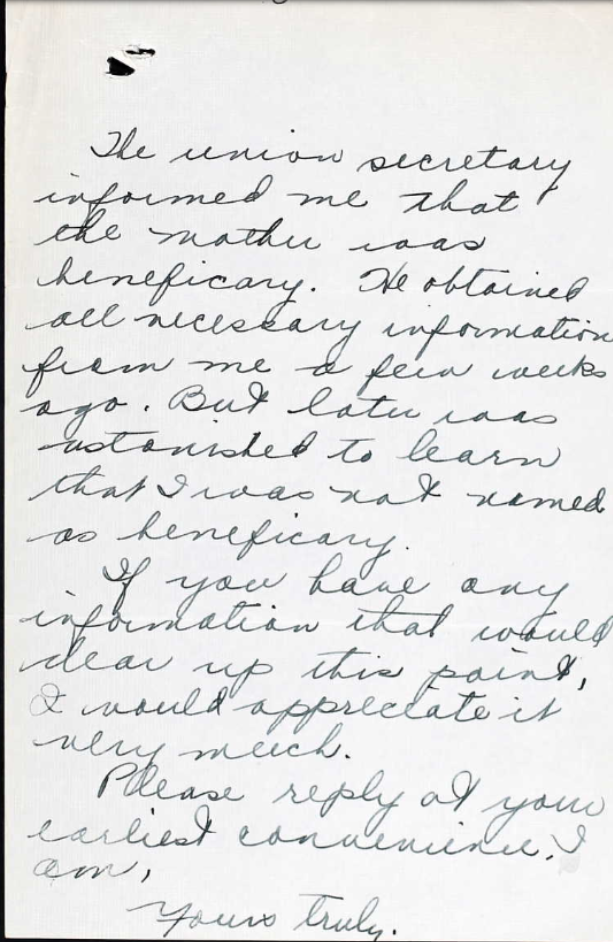 The union secretary
informed me that
the mother was
beneficary. He obtained
all necessary information
from me a few weeks
ago. But later was
astonished to learn
that I was not named
as beneficary.
If you have any
information that would
clear up this point,
I would appreciate it
very much.
Please reply at your
earliest convenience. I
am,
Yours truly.